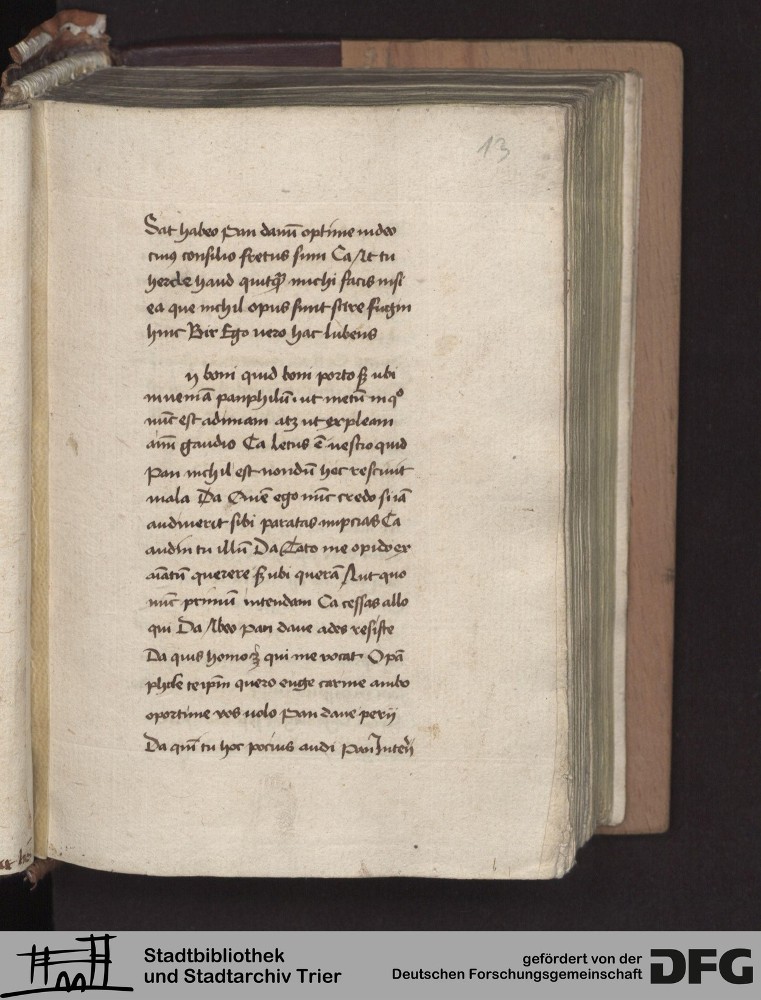 13
Sat habeo Pan dauū optime uideo
cuiꝰ consilio fretus sum Ca At tu
hercle haud quitqȝ michi facis nisi
ea que nichil opus sunt scire fugin
hinc Bir Ego uero hac lubens
ij boni quid boni porto sȝ ubi
inueniā panphilū ut metū in qᵒ
nūc est adimam atqȝ ut expleam
aīm gaudio Ca letus ē nescio quid
Pan nichil est nondū hec resciuit
mala Da Quē ego nūc credo si iā
audiuerit sibi paratas nupcias Ca
audin tu illū Da Tato me opido ex
aīatū querere sȝ ubi querā Aut quo
nūc primū intendam Ca cessas allo
qui Da Abeo Pan daue ades resiste
Da quis homo ē qui me vocat O pā
phile te ipm̄ quero euge carine ambo
oportune vos uolo Pan daue perij
Da qui tu hoc pocius audi Pan Interij
Stadtbibliothek
und Stadtarchiv Trier
gefördert von der
Deutschen Forschungsgemeinschaft
DFG